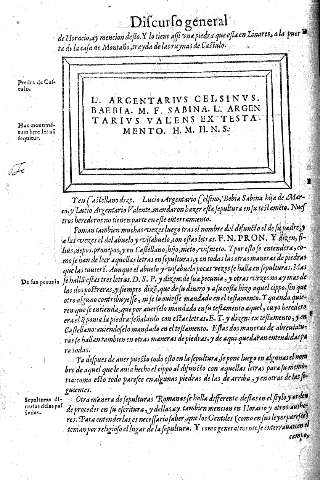 Discurso general
de Horacio, ay mencion desto. Y lo tiene assi vna piedra que està en Linares, a la puer
ta de la casa de Montalũo, trayda de las ruynas de Castulo.
Piedra de Cas-
tulo.
Hoc monumen-
tum heredes non
sequitur.
L. ARGENTARIVS CELSINVS.
BAEBIA. M. F. SABINA. L. ARGEN
TARIVS VALENS EX TESTA-
MENTO. H. M. H. N. S.
Y en Castellano dize. Lucio Argentario Celsino, Bebia Sabina hija de Mar-
co, y Lucio Argentario Valente, mandaron hazer esta sepultura en su testamẽto. Nues
tros herederos no tienen parte en este enterramiento.
Ponian tambien muchas vezes luego tras el nombre del difuncto el de su padre, y
a las vezes el del abuelo y visabuelo, con estas letras. F. N. PRON. Y dizen, fi-
lius, nepos, pronepos, y en Castellano, hijo, nieto, visnieto.
mo se han de leer aquellas letras en sepulturas, y en todas las otras maneras de piedras
que las tuuierẽ. Aunque el abuelo y visabuelo pocas vezes se halla en sepulturas.
De sua pecunia
se hallã estas tres letras. D. S. P. y dizen de sua pecunia, y otras vezes no ay mas de
las dos postreras, y siempre dizẽ, que de su dinero y a su costa hizo aquel cippo, sin que
otro alguno contribuyesse, ni se lo vuiesse mandado en el testamento. Y quando quie-
en el ponen la piedra, señalanlo con estas letras. E. T. y dizen ex testamento, y en
Castellano auiendoselo mandado en el testamento. Estas dos maneras de abreuiatu-
ras se hallan tambien en otras maneras de piedras, y de aqui quedaran entendidas pa
ra todas.
Ya despues de auer puesto todo esto en la sepultura, se pone luego en algunas el nom
bre de aquel que le auia hecho el cippo al difuncto con aquellas letras para su memoria
como esto todo parece en algunas piedras de las de arriba, y en otras de las si-
guientes.
Sepulturas di-
Otra manera de sepulturas Romanas se halla differente destas en el stylo y orden
de proceder en su escritura, y dellas ay tambien mencion en Horacio y otros autho-
res. Para entenderlas es necessario saber, que los Gentiles (como en sus leyes parece)
tenian por religioso el lugar de la sepultura. Y como generalmente se enterrauan en el
campo,